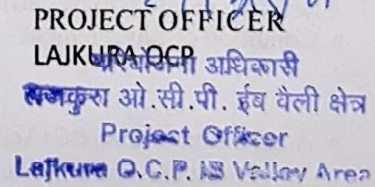 PROJECT OFFICER
LAJKURA OCP
परियोजना अधिकारी
लाजकुरा ओ.सी.पी. ईब वैली क्षेत्र
Project Officer
Lajkura O.C.P. IB Valley Area